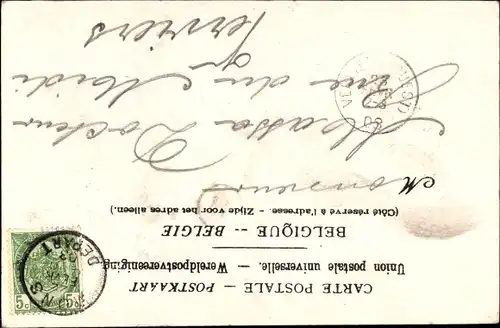 CARTE POSTALE. — POSTKAART
Union postale universelle. — Wereldpostvereeniging
BELGIQUE -- BELGIE
(Côté réservé à l'adresse. - Zijde voor het adres alleen.)
Monsieur
Massa Docteur
Rue du Midi
Verviers
5c 5c
DEPART